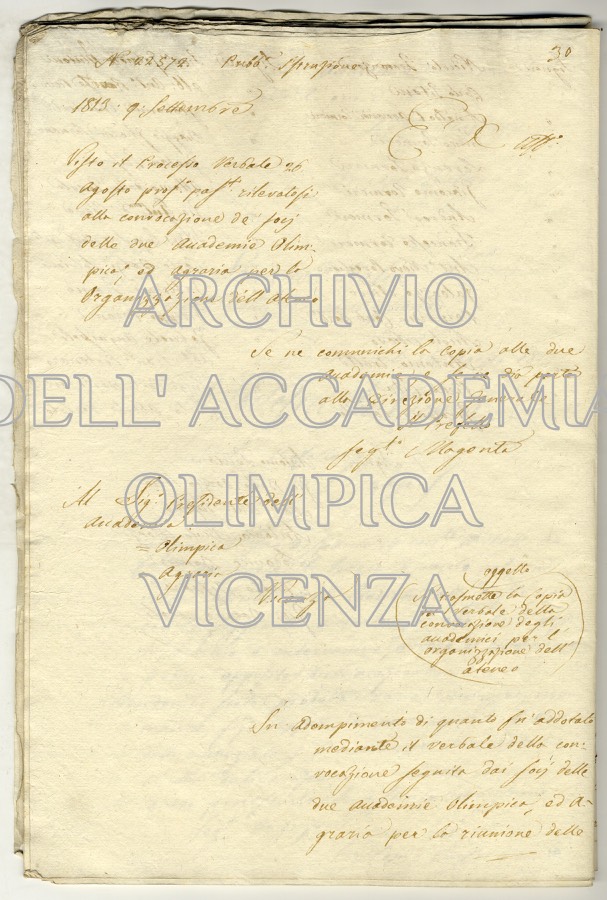 30
N.° 22572. Pubb.ª Istruzione
1813: 9: Settembre
Visto il Processo Verbale 26
Agosto pros.° pas.t° rilevatosi
alla convocazione de socj
delle due Academie Olim-
pica, ed Agraria per la
Organizzazione dell'Ateneo
Se ne comunichi la copia alle due
Academie e se ne dia parte
alla Direzione Generale
Il Prefetto
seg.to Magenta
Al Sig.r Presidente dell'
Academia
= Olimpica
Agraria
Vicenza
oggetto
Si trasmette la Copia
del verbale della
convocazione degli
academici per l'
organizzazione dell'
ateneo
In adempimento di quanto fu addotato
mediante il verbale della con-
vocazione seguita dai socj delle
due Academie Olimpica, ed A-
graria per la riunione delle
ARCHIVIO
DELL' ACCADEMIA
OLIMPICA
VICENZA